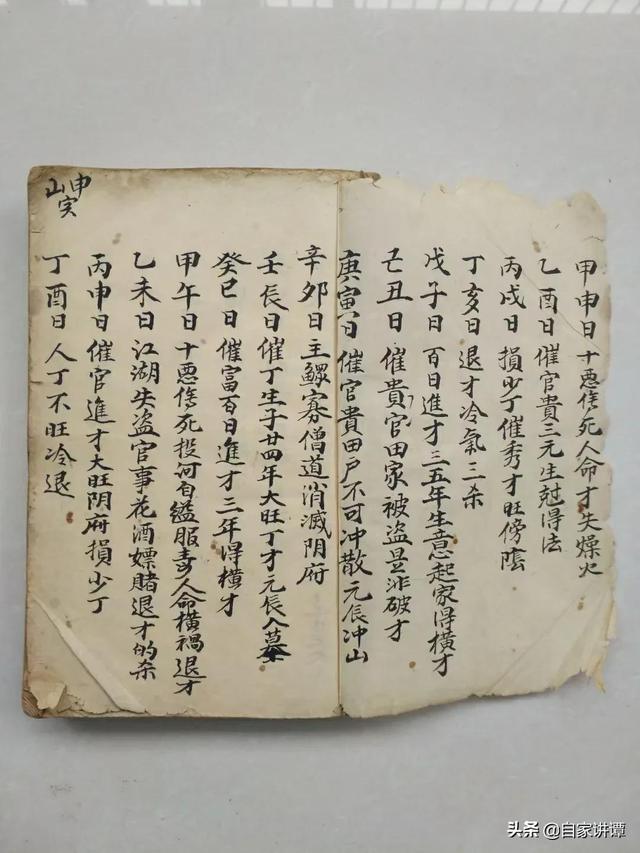 甲申日 十悪傷死人命才失燥火
乙酉日催官貴三元生尅得法
丙戌日 損少丁催秀才旺傍陰
丁亥日 退才冷氣三杀
戊子日 百日進才三五年生意起家得横才
己丑日 催貴官田家被盗是非破才
庚寅日 催官貴田户不可冲散元辰冲山
辛卯日 主鰥寡僧道消滅阴府
壬辰日 催丁生子廿四年大旺丁才元辰入墓
癸巳日 催富百日進才三年得横才
甲午日 十悪傷死投河自缢服毒人命横禍退才
乙未日 江湖失盗官事花酒嫖賭退才的杀
丙申日 催官進才大旺阴府損少丁
丁酉日 人丁不旺冷退
申山
头条 @自家讲谭